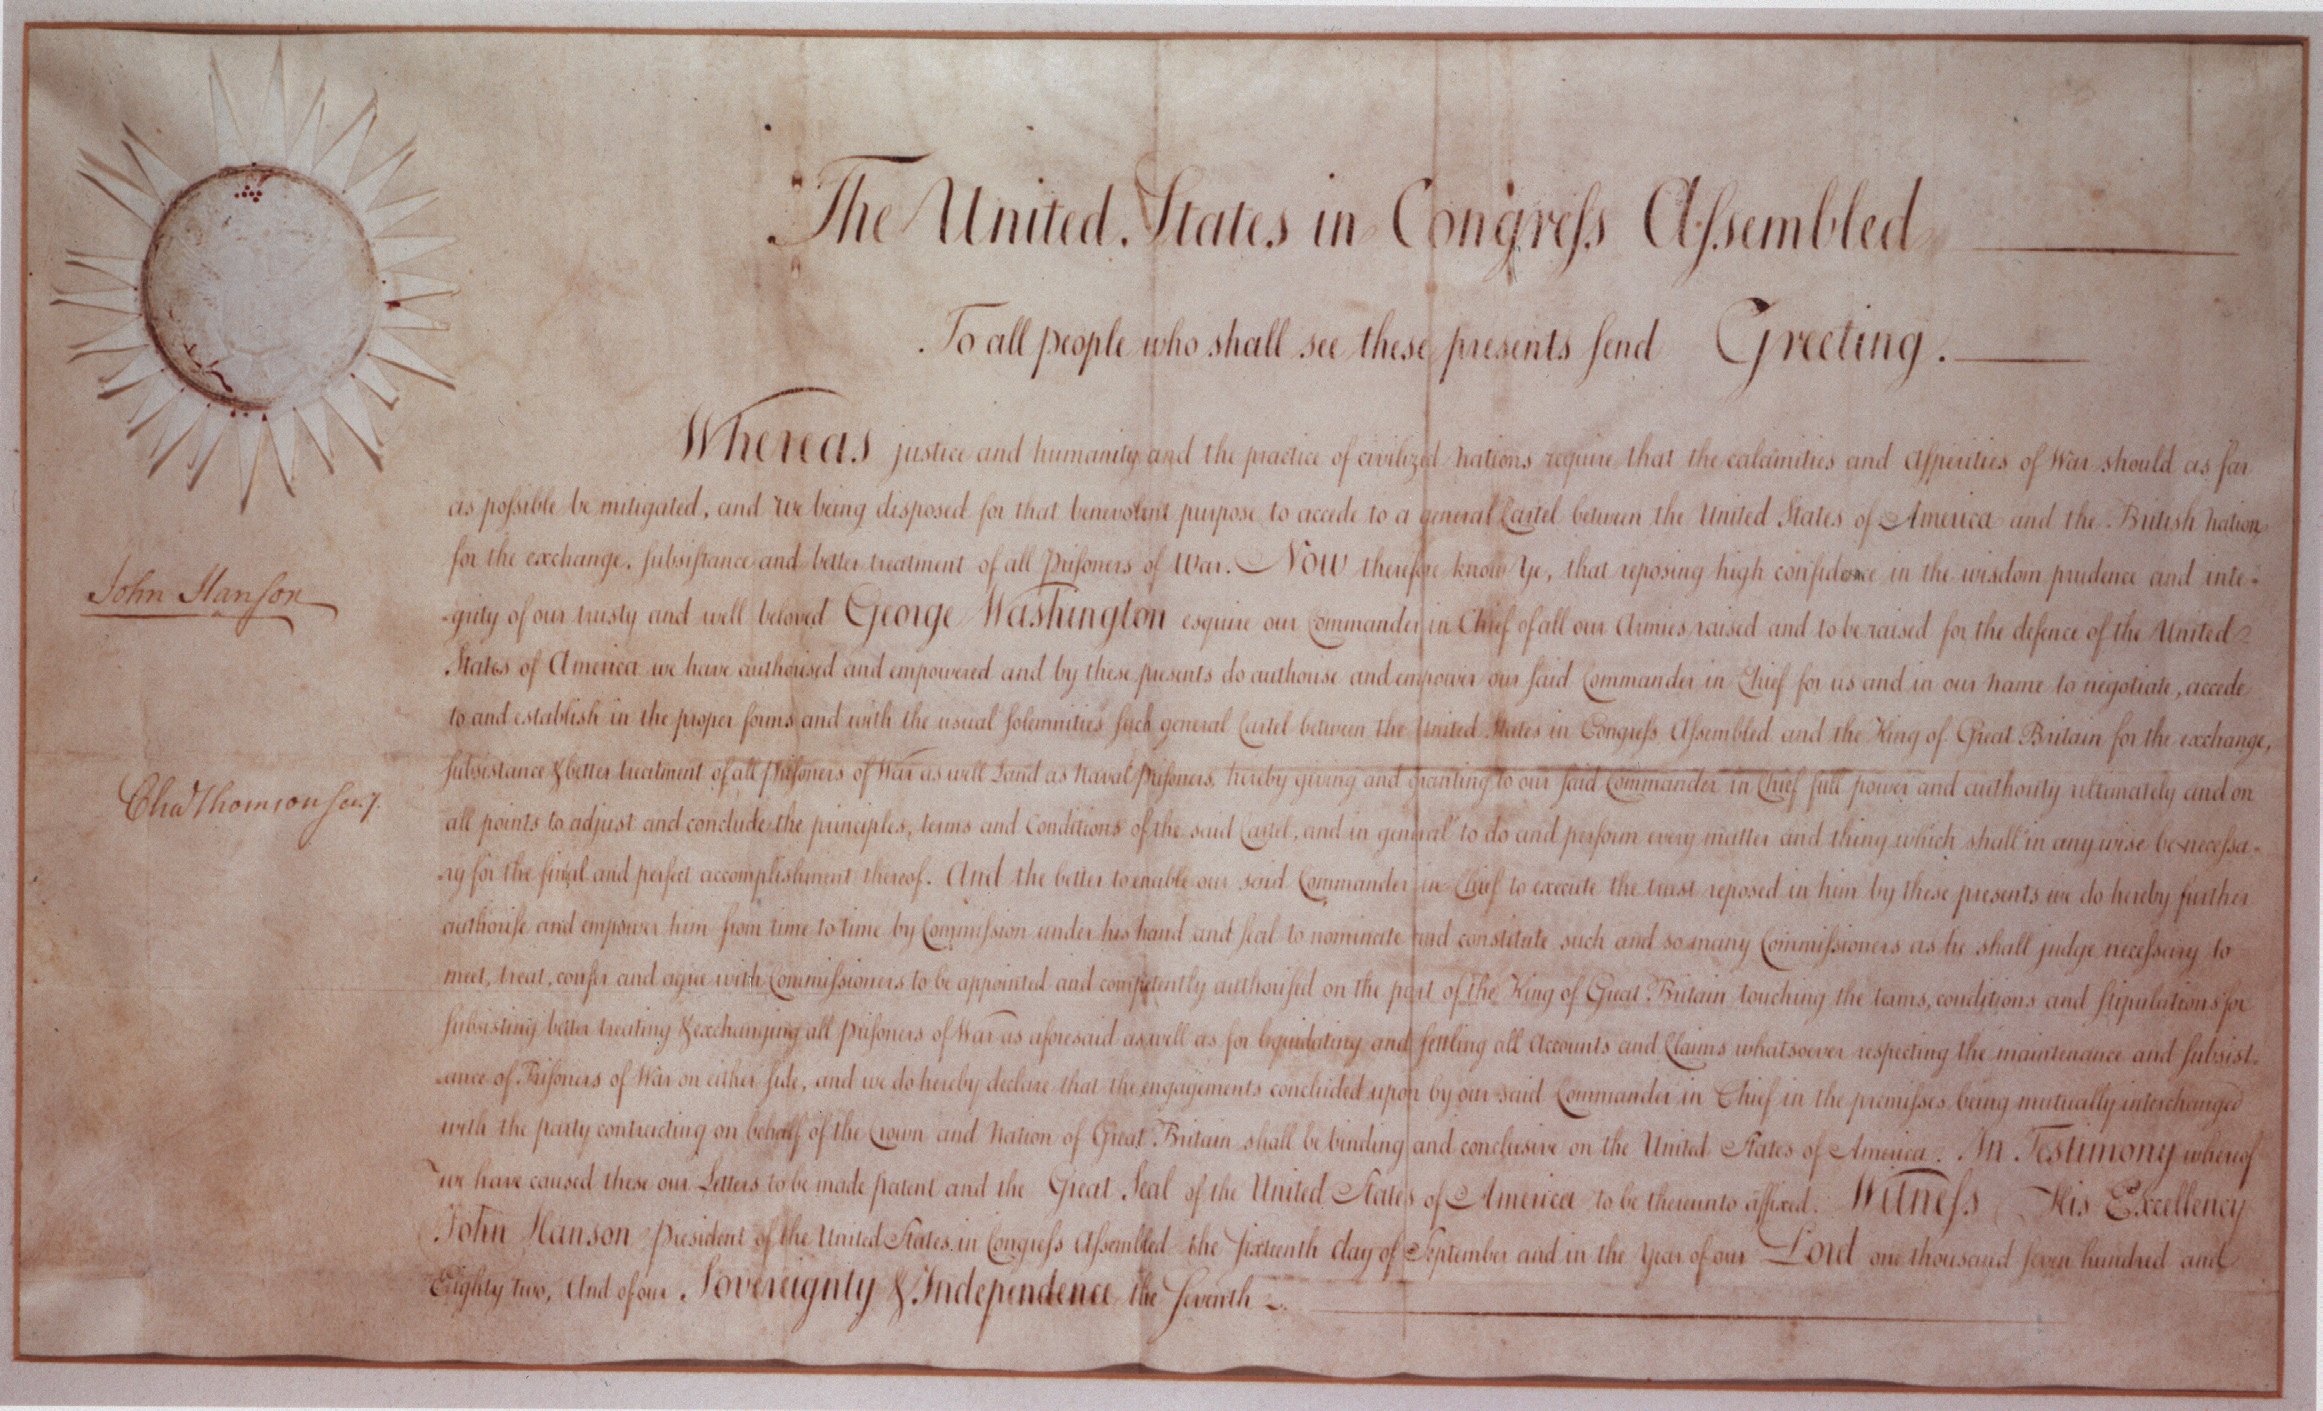 The United States in Congress Assembled
To all people who shall see these presents send Greeting.
Whereas justice and humanity and the practice of civilized nations require that the calamities and asperities of War should as far
as possible be mitigated, and we being disposed for that benevolent purpose to accede to a general Cartel between the United States of America and the British nation
for the exchange, subsistance and better treatment of all prisoners of war. Now therefore know Ye, that reposing high confidence in the wisdom prudence and inte-
-grity of our trusty and well beloved George Washington esquire our Commander in Chief of all our Armies raised and to be raised for the defence of the United
States of America we have authorised and empowered and by these presents do authorise and empower our said Commander in Chief for us and in our name to negotiate, accede
to and establish in the proper forms and with the usual solemnities such general Cartel between the United States in Congress Assembled and the King of Great Britain for the exchange,
subsistance & better treatment of all prisoners of War as well Land as Naval prisoners, hereby giving and granting to our said Commander in Chief full power and authority ultimately and on
all points to adjust and conclude the principles, terms and Conditions of the said Cartel, and in general to do and perform every matter and thing which shall in any wise be necessa-
-ry for the final and perfect accomplishment thereof. And the better to enable our said Commander in Chief to execute the trust reposed in him by these presents we do hereby further
authorise and empower him from time to time by Commission under his hand and seal to nominate and constitute such and so many Commissioners as he shall judge necessary to
meet, treat, confer and agree with Commissioners to be appointed and competently authorised on the part of the King of Great Britain touching the terms, conditions and stipulations for
subsisting better treating & exchanging all prisoners of War as aforesaid as well as for liquidating and settling all Accounts and Claims whatsoever respecting the maintenance and subsist-
-ance of Prisoners of War on either side, and we do hereby declare that the engagements concluded upon by our said Commander in Chief in the premisses being mutually interchanged
with the party contracting on behalf of the Crown and Nation of Great Britain shall be binding and conclusive on the United States of America. In Testimony whereof
we have caused these our Letters to be made patent and the Great Seal of the United States of America to be thereunto affixed. Witness His Excellency
John Hanson President of the United States in Congress Assembled the sixteenth day of September and in the Year of our Lord one thousand seven hundred and
Eighty two, And of our Sovereignty & Independence the seventh
John Hanson
Chas Thomson secy.